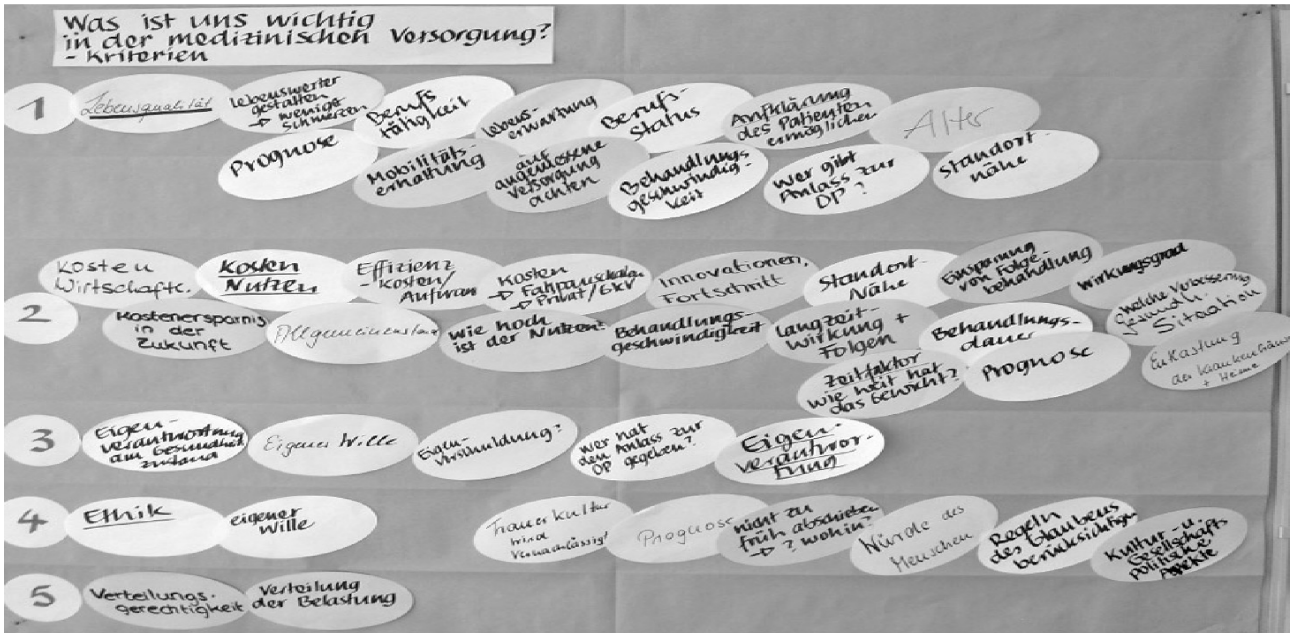 Was ist uns wichtig
in der medizinischen Versorgung?
- Kriterien
1
Lebensqualität
Lebenswerter
gestalten
→ weniger
Schmerzen
Berufs
tätigkeit
Lebens-
erwartung
Berufs-
Status
Aufklärung
des Patienten
ermöglichen
Alter
Prognose
Mobilitäts-
erhaltung
auf
angemessene
Versorgung
achten
Behandlungs
geschwindig-
keit
Wer gibt
Anlass zur
OP?
Standort-
nähe
2
Kosten
Wirtschaftl.
Kosten
Nutzen
Effizienz
- Kosten/
Aufwan
Kosten
→ Fahpauschalen
→ Privat/GKV
Innovationen,
Fortschritt
Standort-
Nähe
Einsparung
von Folge-
behandlung
Wirkungsgrad
Kostenersparnis
in der
Zukunft
Allgemeinzustand
wie hoch
ist der Nutzen?
Behandlungs-
geschwindigkeit
Langzeit-
wirkung +
Folgen
Behandlungs-
dauer
welche Verbesserung
Gesundh.
Sitation
Zeitfaktor
wie weit hat
das Gewicht?
Prognose
Entlastung
der Krankenhäuser
+ Heime
3
Eigen-
verantwortung
am Gesundheits
zustand
Eigener Wille
Eigen-
verschuldung?
wer hat
den Anlass zur
OP gegeben?
Eigen-
verantwor-
tung
4
Ethik
eigener
Wille
Trauerkultur
wird
vernachlässigt
Prognose
nicht zu
früh abschieben
→ ? wohin?
Würde des
Menschen
Regeln
des Glaubens
berücksichtigen
Kultur- u.
Gesellschafts
politische
Aspekte
5
Verteilungs-
gerechtigkeit
Verteilung
der Belastung